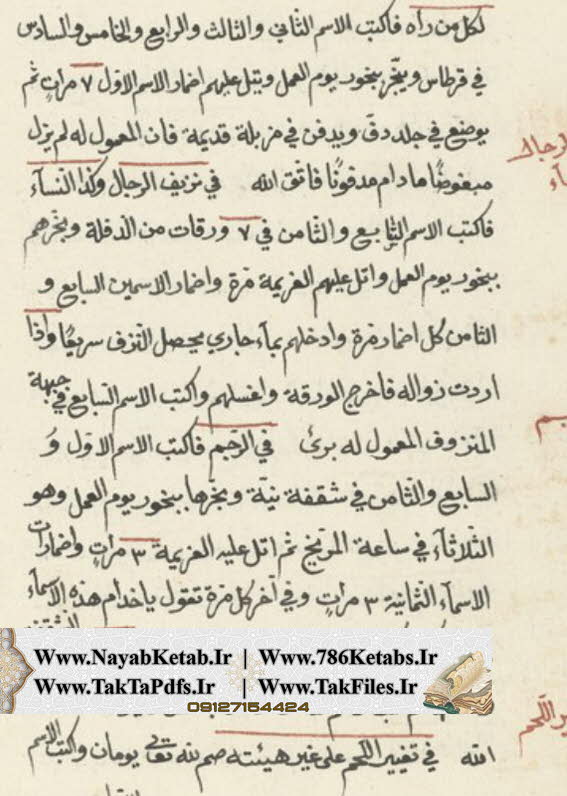 لكل من رأه فاكتب الاسم الثاني والثالث والرابع والخامس والسادس
في قرطاس وبخّر ببخور يوم العمل ويتلى عليهم اضمار الاسم الاول ٧ مرات ثم
يوضع في جلد دف ويدفن في مزبلة قديمة فان المعمول له لم يزل
مبغوضًا مادام مدفونًا فاتق الله في نزيف الرجال وكذا النسآء
فاكتب الاسم السابع والثامن في ٧ ورقات من الدفلة وبخرهم
ببخور يوم العمل واتل عليهم العزيمة مرة واضمار الاسمين السابع و
الثامن كل اضمار مرة وادخلهم بمآء جاري يحصل النزف سريعًا واذا
اردت زواله فاخرج الورقة واغسلهم واكتب الاسم السابع في جبهة
المنزوف المعمول له برئ في الرجم فاكتب الاسم الاول و
السابع والثامن في شقفة نيّة وبخّرها ببخور يوم العمل وهو
الثلاثآء في ساعة المريخ ثم اتل عليه العزيمة ٣ مرات واضمارات
الاسمآء الثمانية ٣ مرات وفي آخر كل مرة تقول ياخدام هذه الاسمآء
Www.NayabKetab.Ir | Www.786Ketabs.Ir
Www.TakTaPdfs.Ir | Www.TakFiles.Ir
09127154424
الله في تغيير اللحم على غير هيئته صم لله تعالى يومان واكتب الاسم